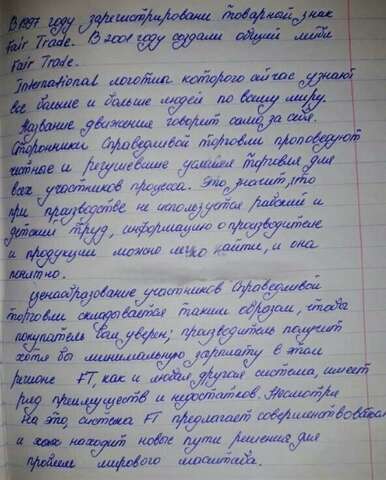 В 1997 году зарегистрировани товарный знак
Fair Trade. В 2001 году создали общей
Fair Trade.
International логотип которого сейчас узнают
все больше и больше людей по всему миру.
Название движения говорит само за себя.
Сторонники Справедливой торговли проповедуют
честные и условия торговля для
всех участников процесса. Это значит, что
при производстве не используется рабский и
детский труд, информацию о производителе
и продукции можно легко найти, и она
понятно.
ценообразование участников Справедливой
торговли складывается таким образом, чтобы
покупатель был уверен; производитель получит
хотя бы минимальную зарплату в этом
регионе FT, как и любая другая система, имеет
ряд преимуществ и недостатков. Несмотря
на это, система FT предлагает совершенствоваться
и находит новые пути решения для
проблем мирового масштаба.